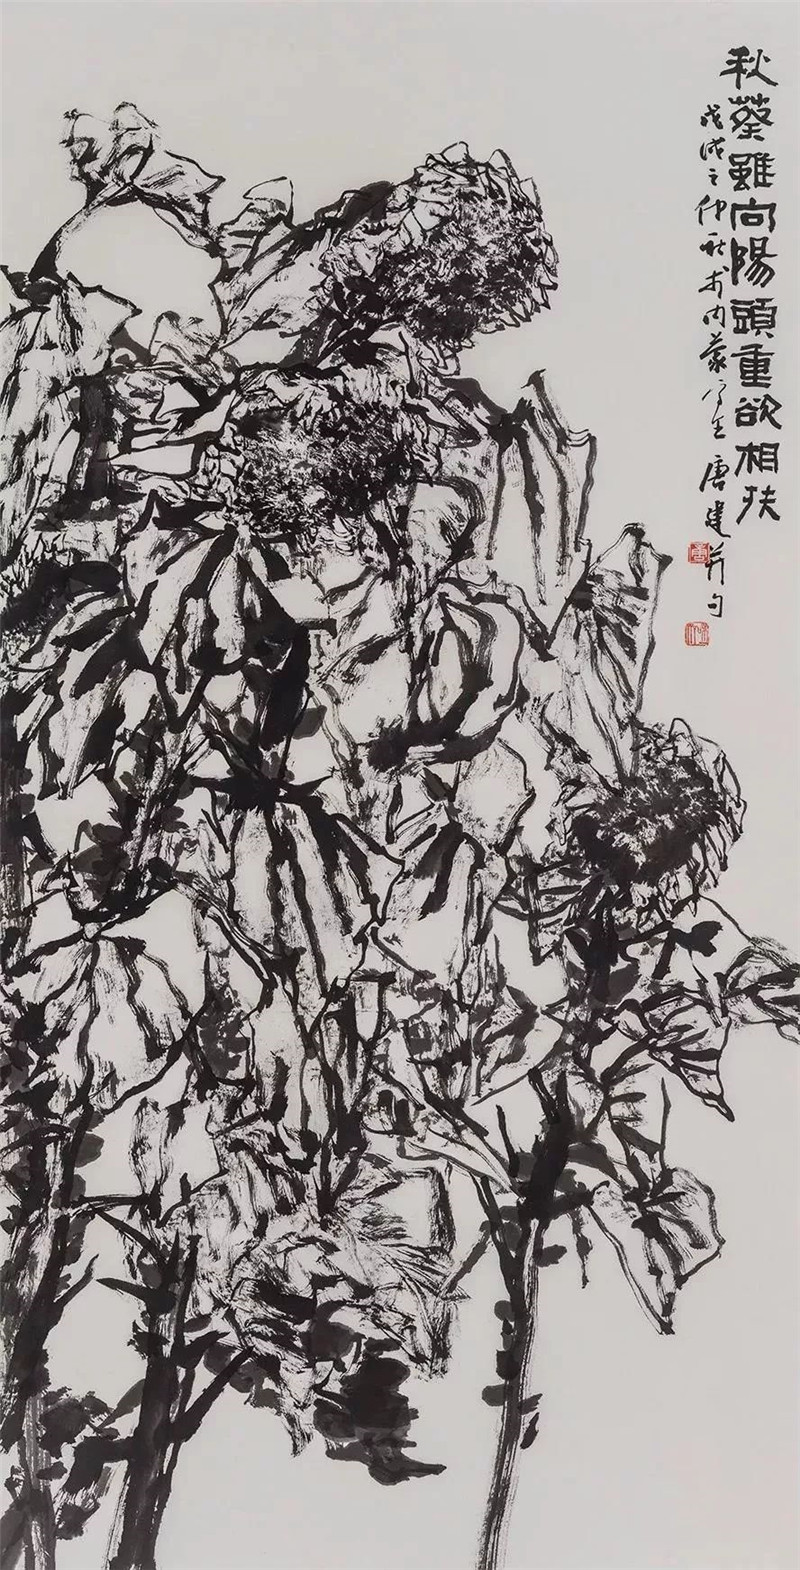 秋葵雖向陽頭重欲相扶
戊戌之仲秋於內蒙寫生唐建并句